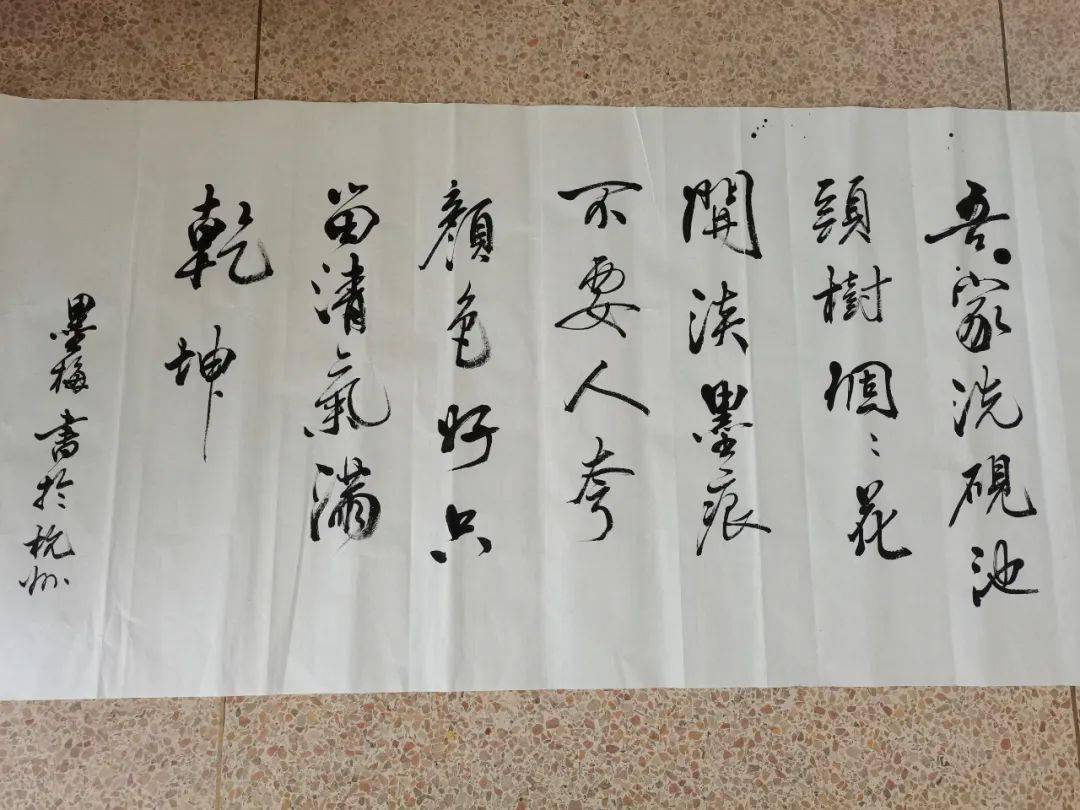 吾家洗硯池
頭樹個〻花
開淡墨痕
不要人夸
顏色好只
留清氣滿
乾坤
墨梅書於杭州